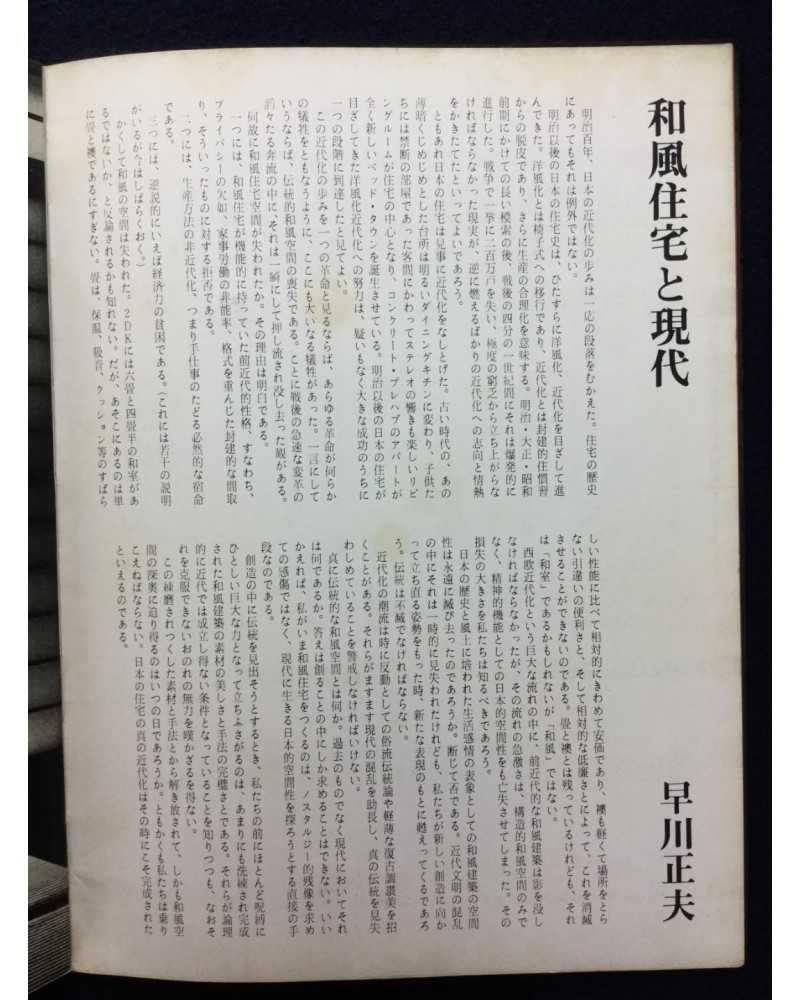 和風住宅と現代
早川正夫
明治百年、日本の近代化の歩みは一応の段落をむかえた。住宅の歴史
にあってもそれは例外ではない。
明治以後の日本の住宅史は、ひたすらに洋風化、近代化を目ざして進
んできた。洋風化とは椅子式への移行であり、近代化とは封建的住慣習
からの脱皮であり、さらに生産の合理化を意味する。明治・大正・昭和
前期にかけての長い模索の後、戦後の四分の一世紀間にそれは爆発的に
進行した。戦争で一挙に二百万戸を失い、極度の窮乏から立ち上がらな
ければならなかった現実が、逆に燃えるばかりの近代化への志向と情熱
をかきたてたといってよいであろう。
ともあれ日本の住宅は見事に近代化をなしとげた。古い時代の、あの
薄暗くじめじめとした台所は明るいダイニングキチンに変わり、子供た
ちには禁断の部屋であった客間にかわってステレオの響きも楽しいリビ
ングルームが住宅の中心となり、コンクリート・プレハブのアパートが
全く新しいベッド・タウンを誕生させている。明治以後の日本の住宅が
目ざしてきた洋風化近代化への努力は、疑いもなく大きな成功のうちに
一つの段階に到達したと見てよい。
この近代化の歩みを一つの革命と見るならば、あらゆる革命が何らか
の犠牲をともなうように、ここにも大いなる犠牲があった。一言にして
いうならば、伝統的和風空間の喪失である。ことに戦後の急速な変革の
滔々たる奔流の中に、それは一瞬にして押し流され没し去った観がある。
何故に和風住宅空間が失われたか。その理由は明白である。
一つには、和風住宅が機能的に持っていた前近代的性格、すなわち、
プライバシーの欠如、家事労働の非能率、格式を重んじた封建的な間取
り、そういったものに対する拒否である。
二つには、生産方法の非近代化、つまり手仕事のたどる必然的な宿命
である。
三つには、逆説的にいえば経済力の貧困である。(これには若干の説明
がいるが今はしばらくおく。)
かくして和風の空間は失われた。2DKには六畳と四畳半の和室があ
るではないか、と反論されるかも知れない。だが、あそこにあるのは単
に畳と襖であるにすぎない。畳は、保温、吸音、クッション等のすばら
しい性能に比べて相対的にきわめて安価であり、襖も軽くて場所をとら
ない引違いの便利さと、そして相対的な低廉さとによって、これを消滅
させることができないのである。畳と襖とは残っているけれども、それ
は「和室」であるかもしれないが「和風」ではない。
西欧近代化という巨大な流れの中に、前近代的な和風建築は影を没し
なければならなかったが、その流れの急激さは、構造的和風空間のみで
なく、精神的機能としての日本的空間性をも亡失させてしまった。その
損失の大きさを私たちは知るべきであろう。
日本の歴史と風土に培われた生活感情の表象としての和風建築の空間
性は永遠に滅び去ったのであろうか。断じて否である。近代文明の混乱
の中にそれは一時的に見失われたけれども、私たちが新しい創造に向か
って立ち直る姿勢をもった時、新たな表現のもとに甦えってくるであろ
う。伝統は不滅でなければならない。
近代化の潮流は時に反動としての俗流伝統論や軽薄な復古調讃美を招
くことがある。それらがますます現代の混乱を助長し、真の伝統を見失
わしめていることを警戒しなければいけない。
真に伝統的な和風空間とは何か。過去のものでなく現代においてそれ
は何であるか。答えは創ることの中にしか求めることはできない。いい
かえれば、私がいま和風住宅をつくるのは、ノスタルジー的残像を求め
ての感傷ではなく、現代に生きる日本的空間性を探ろうとする直接の手
段なのである。
創造の中に伝統を見出そうとするとき、私たちの前にほとんど呪縛に
ひとしい巨大な力となって立ちふさがるのは、あまりにも洗練され完成
された和風建築の素材の美しさと手法の完璧さとである。それらが論理
的に近代では成立し得ない条件となっていることを知りつつも、なおそ
れを克服できないおのれの無力を嘆かざるを得ない。
この練磨されつくした素材と手法とから解き放されて、しかも和風空
間の深奥に迫り得るのはいつの日であろうか。ともかくも私たちは乗り
こえねばならない。日本の住宅の真の近代化はその時にこそ完成された
といえるのである。